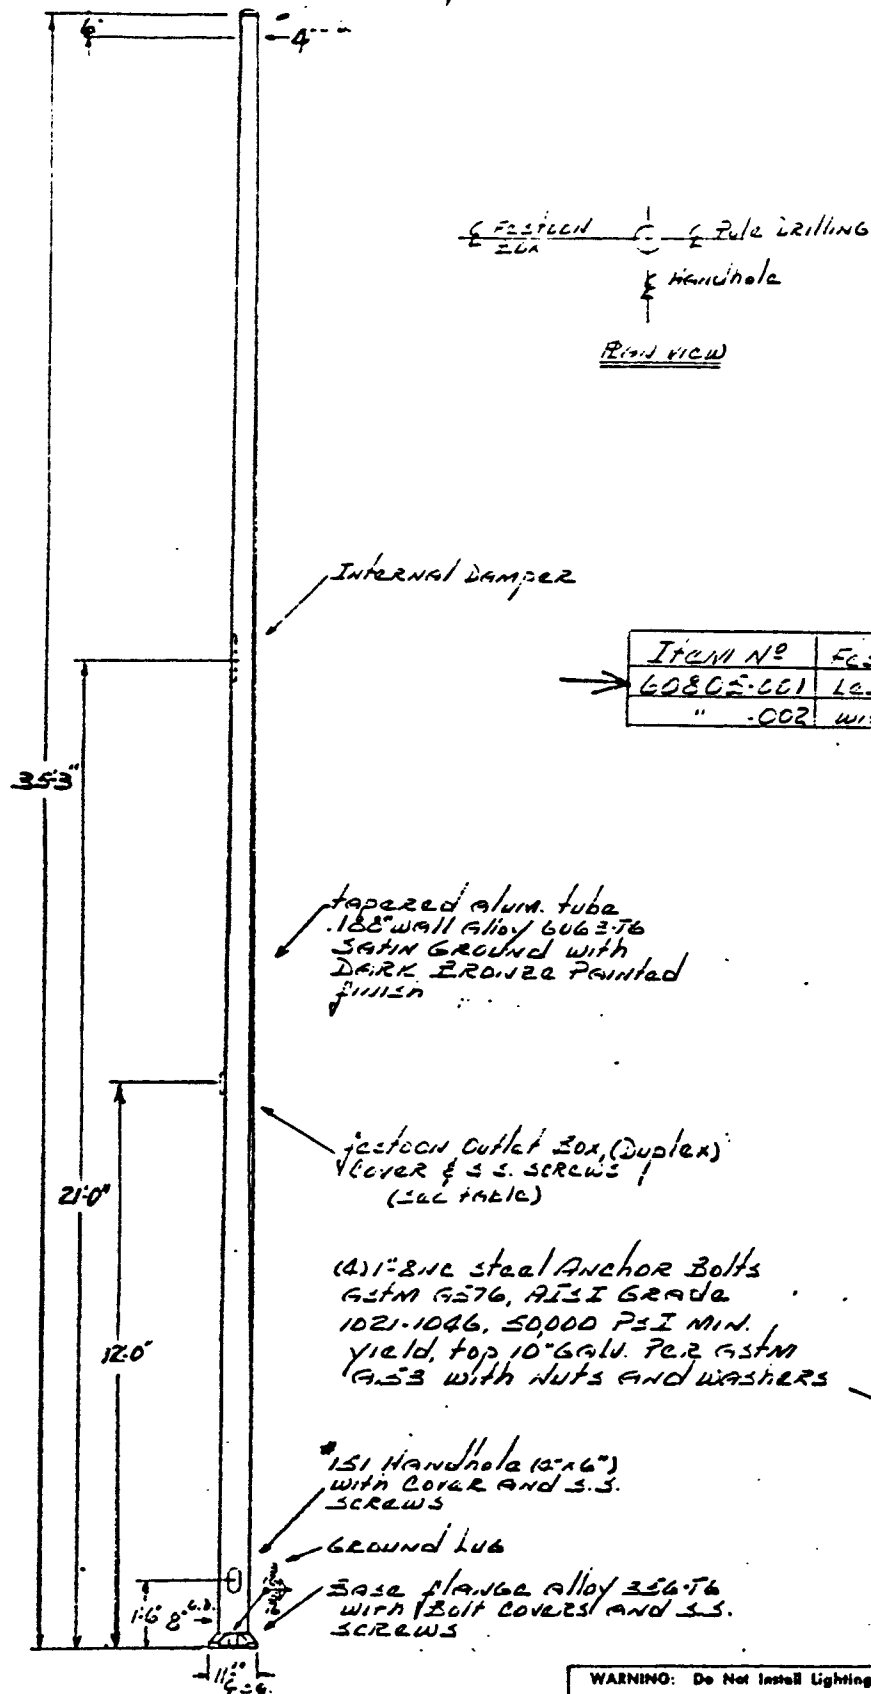 6"
4"
℄ Festoon
Box
℄ Pole Drilling
℄ Handhole
Plan View
Internal Damper
Item Nº
60805-001
" -002
35'3"
tapered alum. tube
.188" wall Alloy 6063-T6
Satin Ground with
Dark Bronze Painted
finish
Festoon Outlet Box, (Duplex)
Cover & S.S. Screws
(see table)
21'0"
(4) 1"-8NC steel Anchor Bolts
ASTM A576, AISI Grade
1021-1046, 50,000 PSI Min.
yield, top 10" Galv. Per ASTM
A153 with Nuts and Washers
12'0"
#151 Handhole (2"x6")
with Cover and S.S.
Screws
Ground Lug
Base flange alloy 356-T6
with Bolt Covers and S.S.
Screws
1'6"
8" O.D.
WARNING: Do Not Install Lighting